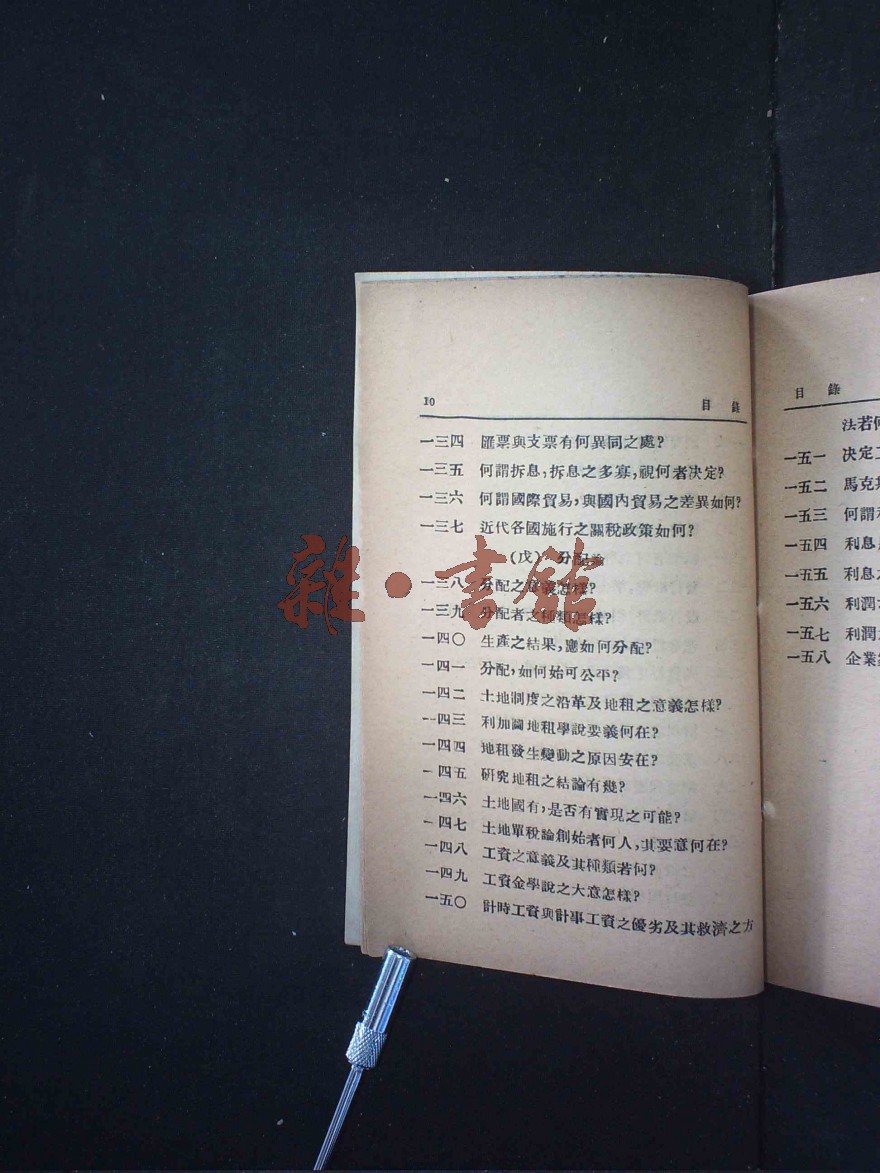 10 目錄
一三四 匯票與支票有何異同之處?
一三五 何謂拆息,拆息之多寡,視何者决定?
一三六 何謂國際貿易,與國內貿易之差異如何?
一三七 近代各國施行之關稅政策如何?
(戊) 分配論
一三八 分配之意義怎樣?
一三九 分配者之種類怎樣?
一四〇 生產之結果,應如何分配?
一四一 分配,如何始可公平?
一四二 土地制度之沿革及地租之意義怎樣?
一四三 利加圖地租學說要義何在?
一四四 地租發生變動之原因安在?
一四五 研究地租之結論有幾?
一四六 土地國有,是否有實現之可能?
一四七 土地單稅論創始者何人,其要意何在?
一四八 工資之意義及其種類若何?
一四九 工資金學說之大意怎樣?
一五〇 計時工資與計事工資之優劣及其救濟之方
目錄
法若
一五一 决定
一五二 馬克
一五三 何謂
一五四 利息
一五五 利息
一五六 利潤
一五七 利潤
一五八 企業
雜·書館